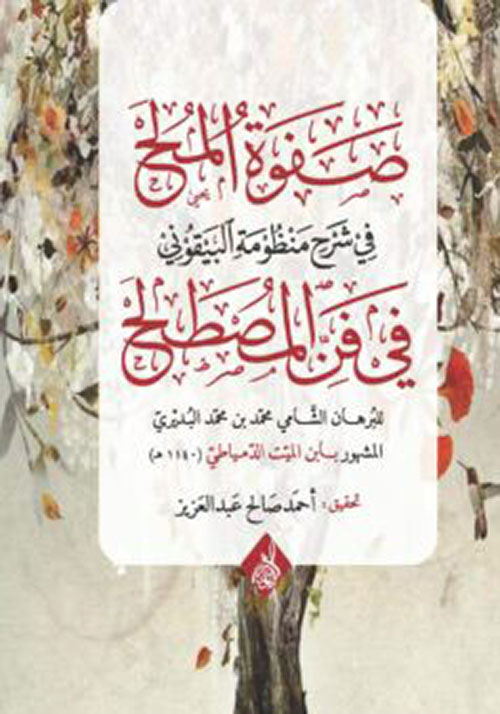 صَفْوَةُ المُلَحِ
فِي شَرْحِ مَنْظُومَةِ البَيْقُونِي
فِي فَنِّ المُصْطَلَحِ
للبُرهان الشَّامي محمّد بن محمّد البُدَيْرِيّ
المشهور بابن الميّت الدّمياطيّ (١١٤٠ هـ)
تحقيق: أحمد صالح عبد العزيز